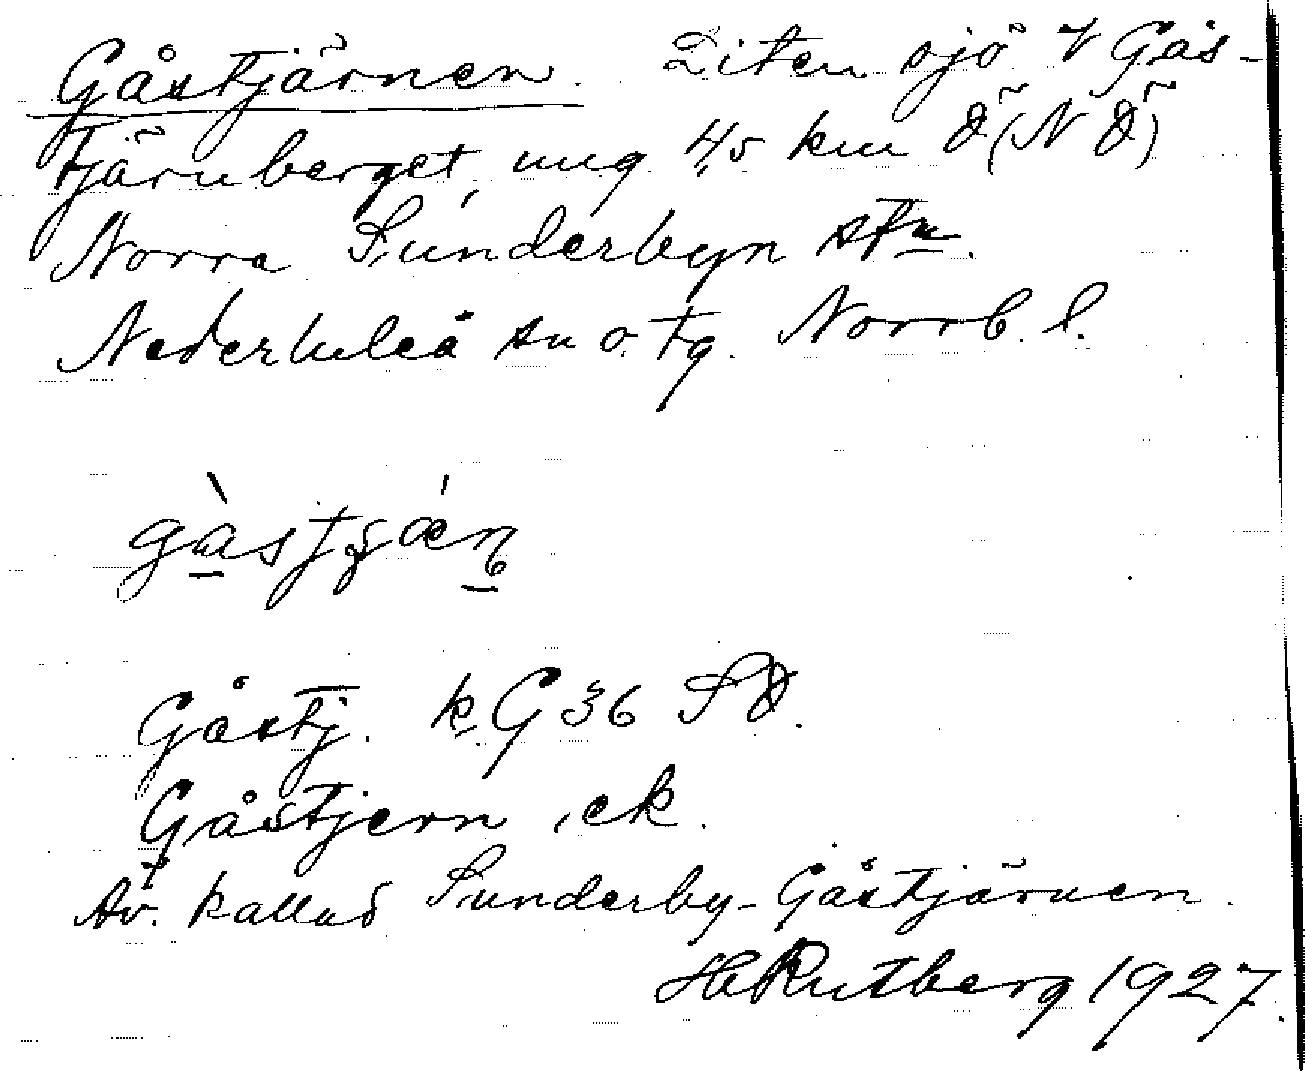 Gåstjärnen. Liten sjö V Gås-
tjärnberget, ung. 4,5 km Ö (NÖ)
Norra Sunderbyn stn.
Nederluleå sn o. tg. Norrb. l.
Gåstj. k. G 36 SÖ.
Gåstjern, ek.
Äv. kallad Sunderby-Gåstjärnen.
H Rutberg 1927.